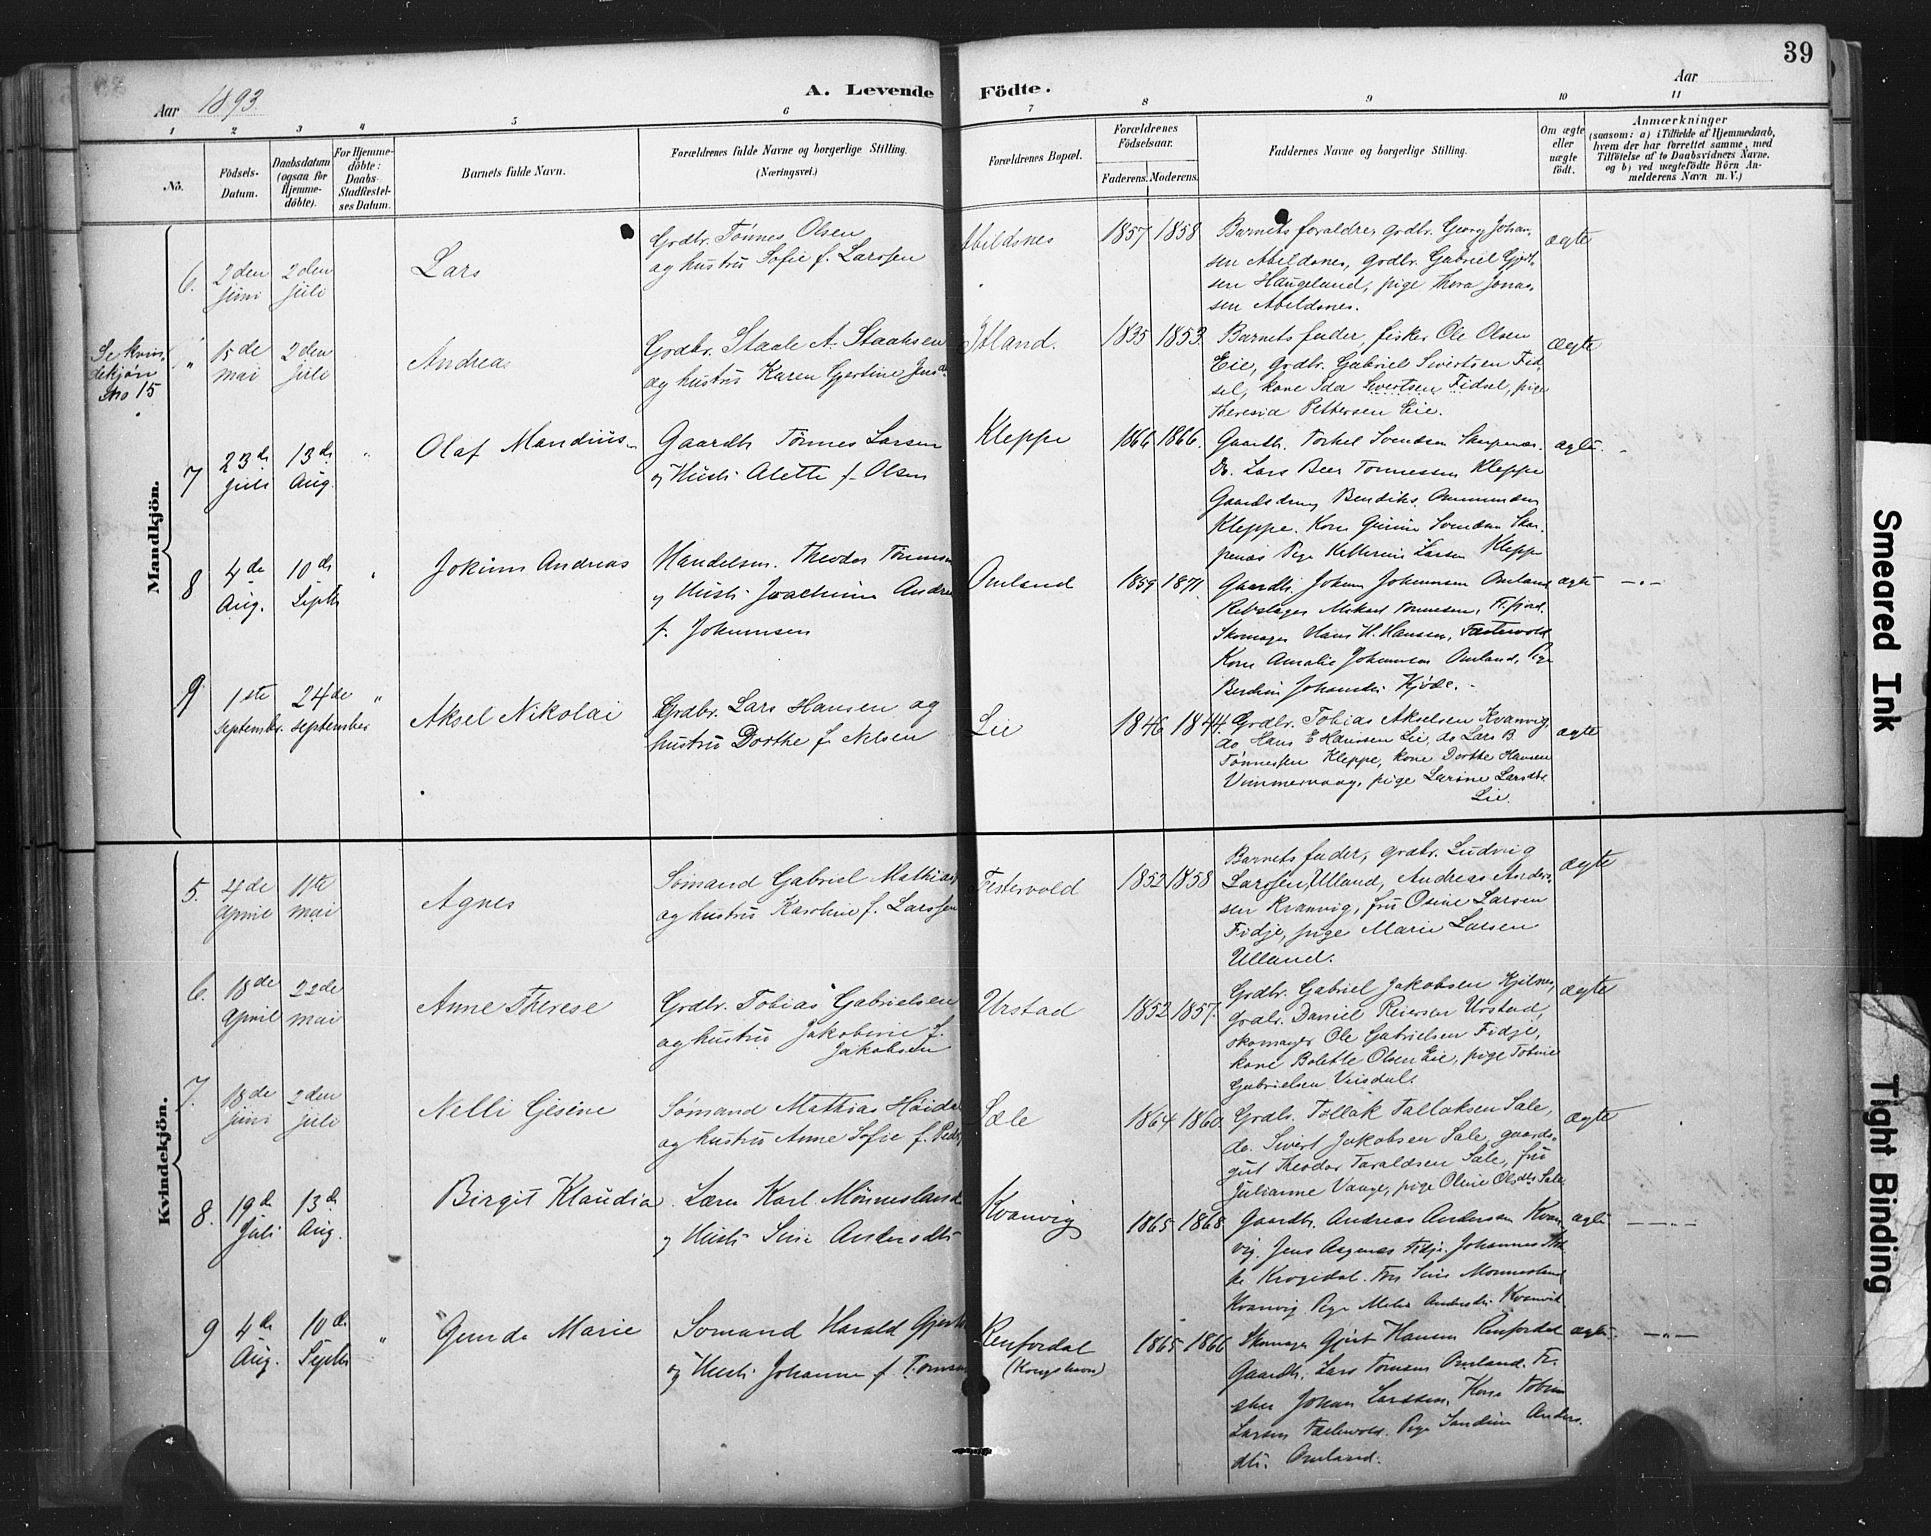 39
Aar 1893.
A. Levende Födte.
Aar
1 2 3 4 5 6 7 8 9 10 11
No.
Födsels-
Datum.
Daabsdatum
(ogsaa for
Hjemme-
döbte).
For Hjemme-
döbte:
Daabs-
Stadfæstel-
ses Datum.
Barnets fulde Navn.
Forældrenes fulde Navne og borgerlige Stilling.
(Næringsvei.)
Forældrenes Bopæl.
Forældrenes
Födselsaar.
Faderens. Moderens.
Faddernes Navne og borgerlige Stilling.
Om ægte
eller
uægte
födt.
Anmærkninger
(saasom: a) i Tilfælde af Hjemmedaab,
hvem der har forrettet samme, med
Tilföielse af to Daabsvidners Navne,
og b) ved uægtefödte Börn An-
melderens Navn m. V.)
Mandkjön.
6. 2den juni
2den juli
Lars
Grdbr. Tønnes Olsen
og hustru Sofie f. Larssen
Abildsnes
1857 1858
Barnets foraldre, grdbr. Georg Johan-
sen Abeldsnes, grdbr. Gabriel
sen Haugeland, pige Thora Jonas-
sen Abeldsnes.
ægte
Se kvin-
dekjøn
No 15
" 15de mai
2den juli
Andrea
Grdbr. Staale A. Staalesen
og hustru Karen Gjertine
1835 1853.
Barnets fader, fisker Ole Olsen
Eie, grdbr. Gabriel Sivertsen Fid-
sel, kone Ida Sivertsen Fidsel, pige
Theresia Pettersen Eie.
ægte
7 23de Juli
13de Aug.
"
Olaf Mandius
Gaardb. Tønnes Larsen
og Hustr. Alette f. Olsen
Kleppe
1866 1866.
Gaardb. Torkel Svendsen
Do. Lars Beer Tønnessen Kleppe
Gaardsdreng Bendiks
Kleppe. Kone Svendsen Skar-
penæs Pige Larsen Kleppe
ægte.
8 4de Aug.
10de Septb
"
Jokum Andreas
Handelsm. Theodor
og Hustr. Joachime
f. Jokumsen
Omland
1859 1871
Gaardb. Jokum Jokumsen Omland
Rebslager Mikael Tønnesen,
Skomager Hans H. Hansen,
Kone Amalie Jokumsen Omland, Pige
ægte
9 1ste septembr.
24de september
"
Aksel Nikolai
Grdbr. Lars Hansen og
hustru Dorthe f. Nilsen
Lie
1846 1844.
Grdbr. Tobias Akselsen Kvanvig
do Hans E Hanssen Lie, do Lars B.
Tønnessen Kleppe, kone Dorthe Hansen
Vummervaag, pige Larsine Larsdtr
Lie.
ægte
Kvindekjön.
5. 4de april
11te mai
Agnes
Sømand Gabriel Mathias
og hustru Karoline f. Larssen
Festervold
1852 1858
Barnets fader, grdbr. Ludvig
Larssen, Ulland, Andreas Ander-
sen Kvanvig, fru Osine Larsen
Fidje, pige Marie Larsen
Ulland.
ægte
6. 18de april
22de mai
Anne Therese
Grdbr. Tobias Gabrielsen
og hustru Jakobine f.
Jakobsen
Urstad
1852 1857.
Grdbr. Gabriel Jakobsen
grdbr. Daniel Reiersen Urstad,
skomager Ole Gabrielsen Fidje,
kone Bolette Olsen Eie, pige Tobine
Gabrielsen
ægte
7. 18de juni
2den juli
Nelli Gesine
Sømand Mathias
og hustru Anne Sofie f.
Sæle
1864 1860.
Grdbr. Tollak Tallaksen Sale,
do. Sivert Jakobsen Sale, gaards-
gut Theodor Taraldsen Sale, fru
Julianne Vaage, pige Oline Olsdtr Sale
ægte
8. 19de Juli
13de Aug.
Birgit Klaudia
Lærer Karl Mønnesland
og Hustr. Sine Andersdtr
Kvanvig
1865 1868
Gaardbr. Andreas Andersen Kvan-
vig. Jens Fidje. Johannes
Krogedal. Fru Sine Mønnesland
Kvanvig. Pige Kvanvik
ægte
9 4de Aug.
10de Septbr
"
Gunde Marie
Sømand Harald
og Hustr. Johanne f.
Renfordal
(Kongshavn)
1865 1866
Skomager Gjert Hansen Renfordal
Gaardb. Lars Omland. Fi-
sker Johan Larssen, Kone
Larsen Pige Anders-
dtr. Omland.
ægte
Smeared Ink
Tight Binding